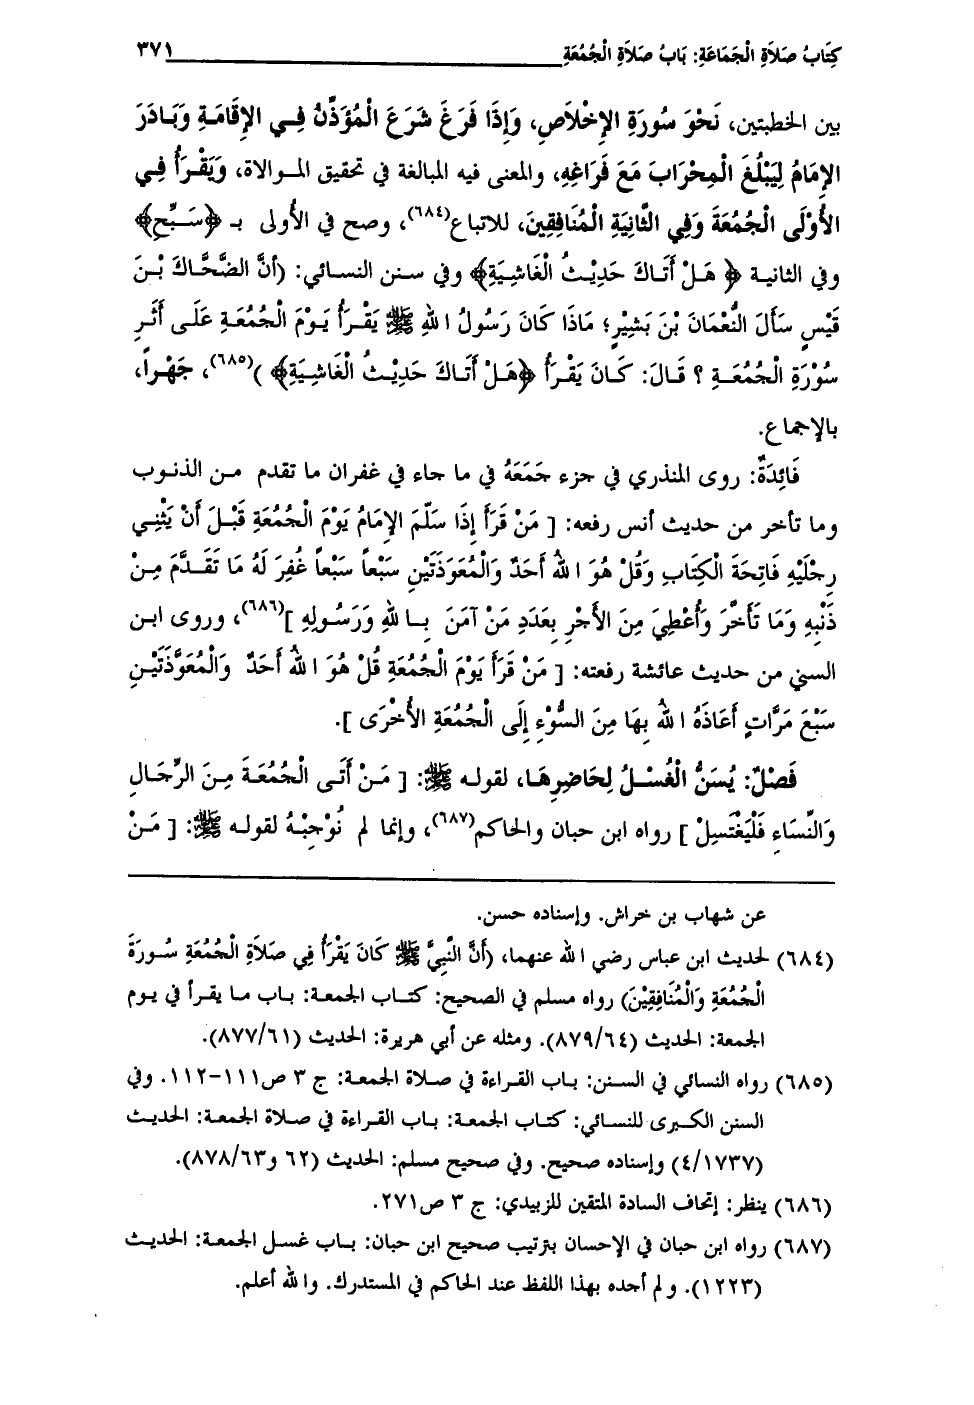 كِتَابُ صَلَاةِ الْجَمَاعَةِ: بَابُ صَلَاةِ الْجُمُعَةِ ٣٧١
بين الخطبتين، نَحْوَ سُورَةِ الإِخْلَاصِ، وَإِذَا فَرَغَ شَرَعَ الْمُؤَذِّنُ فِي الإِقَامَةِ وَبَادَرَ
الإِمَامُ لِيَبْلُغَ الْمِحْرَابَ مَعَ فَرَاغِهِ، والمعنى فيه المبالغة في تحقيق الموالاة، وَيَقْرَأُ فِي
الأُوْلَى الْجُمُعَةَ وَفِي الثَّانِيَةِ الْمُنَافِقِينَ، للاتباع(٦٨٤)، وصح في الأُولى بـ ﴿سَبِّحِ﴾
وفي الثانية ﴿هَلْ أَتَاكَ حَدِيْثُ الْغَاشِيَةِ﴾ وفي سنن النسائي: (أَنَّ الضَّحَّاكَ بْنَ
قَيْسٍ سَأَلَ النُّعْمَانَ بْنَ بَشِيْرٍ؛ مَاذَا كَانَ رَسُولُ اللهِ ﷺ يَقْرَأُ يَوْمَ الْجُمُعَةِ عَلَى أَثَرِ
سُوْرَةِ الْجُمُعَةِ ؟ قَالَ: كَانَ يَقْرَأُ ﴿هَلْ أَتَاكَ حَدِيْثُ الْغَاشِيَةِ﴾ )(٦٨٥)، جَهْراً،
بالإجماع.
فَائِدَةٌ: روى المنذري في جزء جَمَعَهُ في ما جاء في غفران ما تقدم من الذنوب
وما تأخر من حديث أنس رفعه: [ مَنْ قَرَأَ إِذَا سَلَّمَ الإِمَامُ يَوْمَ الْجُمُعَةِ قَبْلَ أَنْ يَثْنِي
رِجْلَيْهِ فَاتِحَةَ الْكِتَابِ وَقُلْ هُوَ اللهُ أَحَدٌ وَالْمُعَوِّذَتَيْنِ سَبْعاً سَبْعاً غُفِرَ لَهُ مَا تَقَدَّمَ مِنْ
ذَنْبِهِ وَمَا تَأَخَّرَ وَأُعْطِيَ مِنَ الأَجْرِ بِعَدَدِ مَنْ آمَنَ بِاللهِ وَرَسُولِهِ ](٦٨٦)، وروى ابن
السني من حديث عائشة رفعته: [ مَنْ قَرَأَ يَوْمَ الْجُمُعَةِ قُلْ هُوَ اللهُ أَحَدٌ وَالْمُعَوَّذَتَيْنِ
سَبْعَ مَرَّاتٍ أَعَاذَهُ اللهُ بِهَا مِنَ السُّوْءِ إِلَى الْجُمُعَةِ الأُخْرَى ].
فَصْلٌ: يُسَنُّ الْغُسْلُ لِحَاضِرِهَا، لقوله ﷺ: [ مَنْ أَتَى الْجُمُعَةَ مِنَ الرِّجَالِ
وَالنِّسَاءِ فَلْيَغْتَسِلْ ] رواه ابن حبان والحاكم(٦٨٧)، وإنما لم نُوْجِبْهُ لقوله ﷺ: [ مَنْ
عن شهاب بن خراش. وإسناده حسن.
(٦٨٤) لحديث ابن عباس رضي الله عنهما، (أَنَّ النَّبِيَّ ﷺ كَانَ يَقْرَأُ فِي صَلَاةِ الْجُمُعَةِ سُورَةَ
الْجُمُعَةِ وَالْمُنَافِقِيْنَ) رواه مسلم في الصحيح: كتاب الجمعة: باب ما يقرأ في يوم
الجمعة: الحديث (٨٧٩/٦٤). ومثله عن أبي هريرة: الحديث (٨٧٧/٦١).
(٦٨٥) رواه النسائي في السنن: باب القراءة في صلاة الجمعة: ج ٣ ص١١١-١١٢. وفي
السنن الكبرى للنسائي: كتاب الجمعة: باب القراءة في صلاة الجمعة: الحديث
(٤/١٧٣٧) وإسناده صحيح. وفي صحيح مسلم: الحديث (٦٢ و٨٧٨/٦٣).
(٦٨٦) ينظر: إتحاف السادة المتقين للزبيدي: ج ٣ ص٢٧١.
(٦٨٧) رواه ابن حبان في الإحسان بترتيب صحيح ابن حبان: باب غسل الجمعة: الحديث
(١٢٢٣). ولم أجده بهذا اللفظ عند الحاكم في المستدرك. والله أعلم.